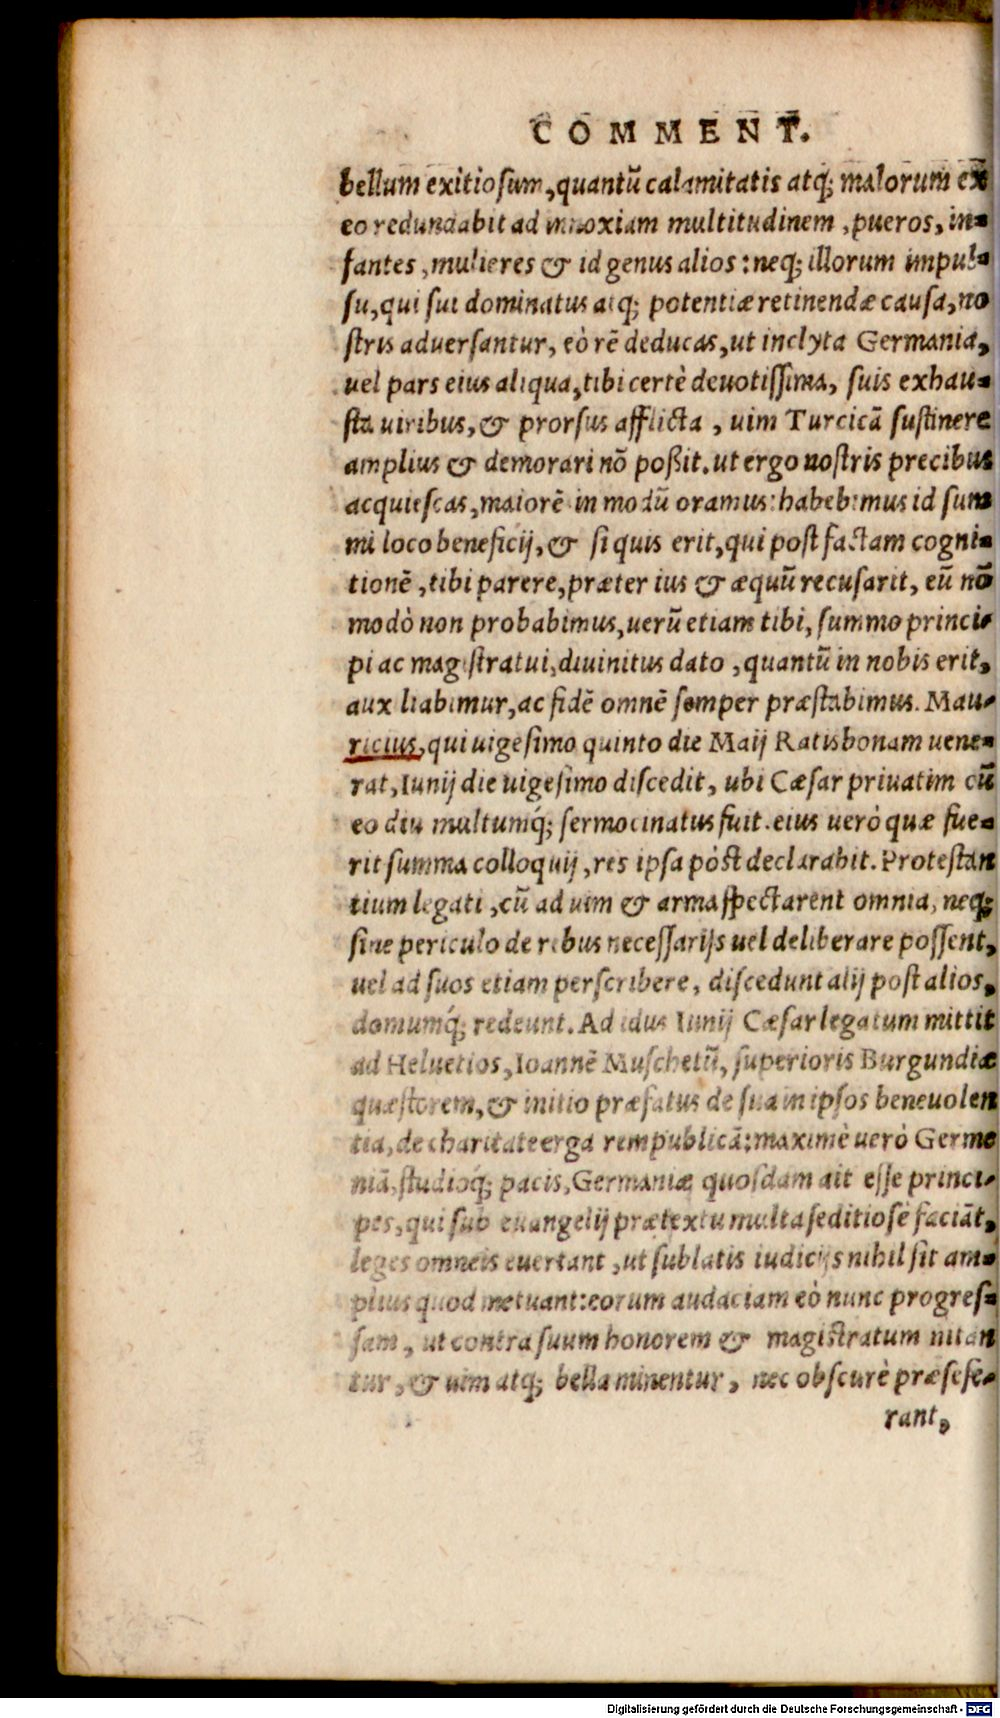 COMMENT.
bellum exitiosum, quantū calamitatis atq; malorum ex
eo redundabit ad innoxiam multitudinem, pueros, in-
fantes, mulieres & id genus alios: neq; illorum impul-
su, qui sui dominatus atq; potentiæ retinendæ causa, no
stris aduersantur, eò rē deducas, ut inclyta Germania,
uel pars eius aliqua, tibi certè deuotissima, suis exhau-
sta uiribus, & prorsus afflicta, uim Turcicā sustinere
amplius & demorari nō poßit. ut ergo nostris precibus
acquiescas, maiorē in modū oramus: habebimus id sum
mi loco beneficij, & si quis erit, qui post factam cogni-
tionē, tibi parere, præter ius & æquū recusarit, eū nō
modò non probabimus, uerū etiam tibi, summo princi-
pi ac magistratui, diuinitus dato, quantū in nobis erit,
auxliabimur, ac fidē omnē semper præstabimus. Mau-
ricius, qui uigesimo quinto die Maij Ratisbonam uene-
rat, Iunij die uigesimo discedit, ubi Cæsar priuatim cū
eo diu multumq́; sermocinatus fuit. eius uerò quæ fue-
rit summa colloquij, res ipsa pòst declarabit. Protestan
tium legati, cū ad uim & arma spectarent omnia, neq;
sine periculo de rebus necessarijs uel deliberare possent,
uel ad suos etiam perscribere, discedunt alij post alios,
domumq́; redeunt. Ad idus Iunij Cæsar legatum mittit
ad Heluetios, Ioannē Muschetū, superioris Burgundiæ
quæstorem, & initio præfatus de sua in ipsos beneuolen
tia, de charitate erga rempublicā: maximè uerò Germa
niā, studioq́; pacis, Germaniæ quosdam ait esse princi-
pes, qui sub euangelij prætextu multa seditiosè faciāt,
leges omneis euertant, ut sublatis iudicijs nihil sit am-
plius quod metuant: eorum audaciam eò nunc progres-
sam, ut contra suum honorem & magistratum nitan
tur, & uim atq; bella minentur, nec obscurè præ se fe-
rant,
Digitalisierung gefördert durch die Deutsche Forschungsgemeinschaft - DFG